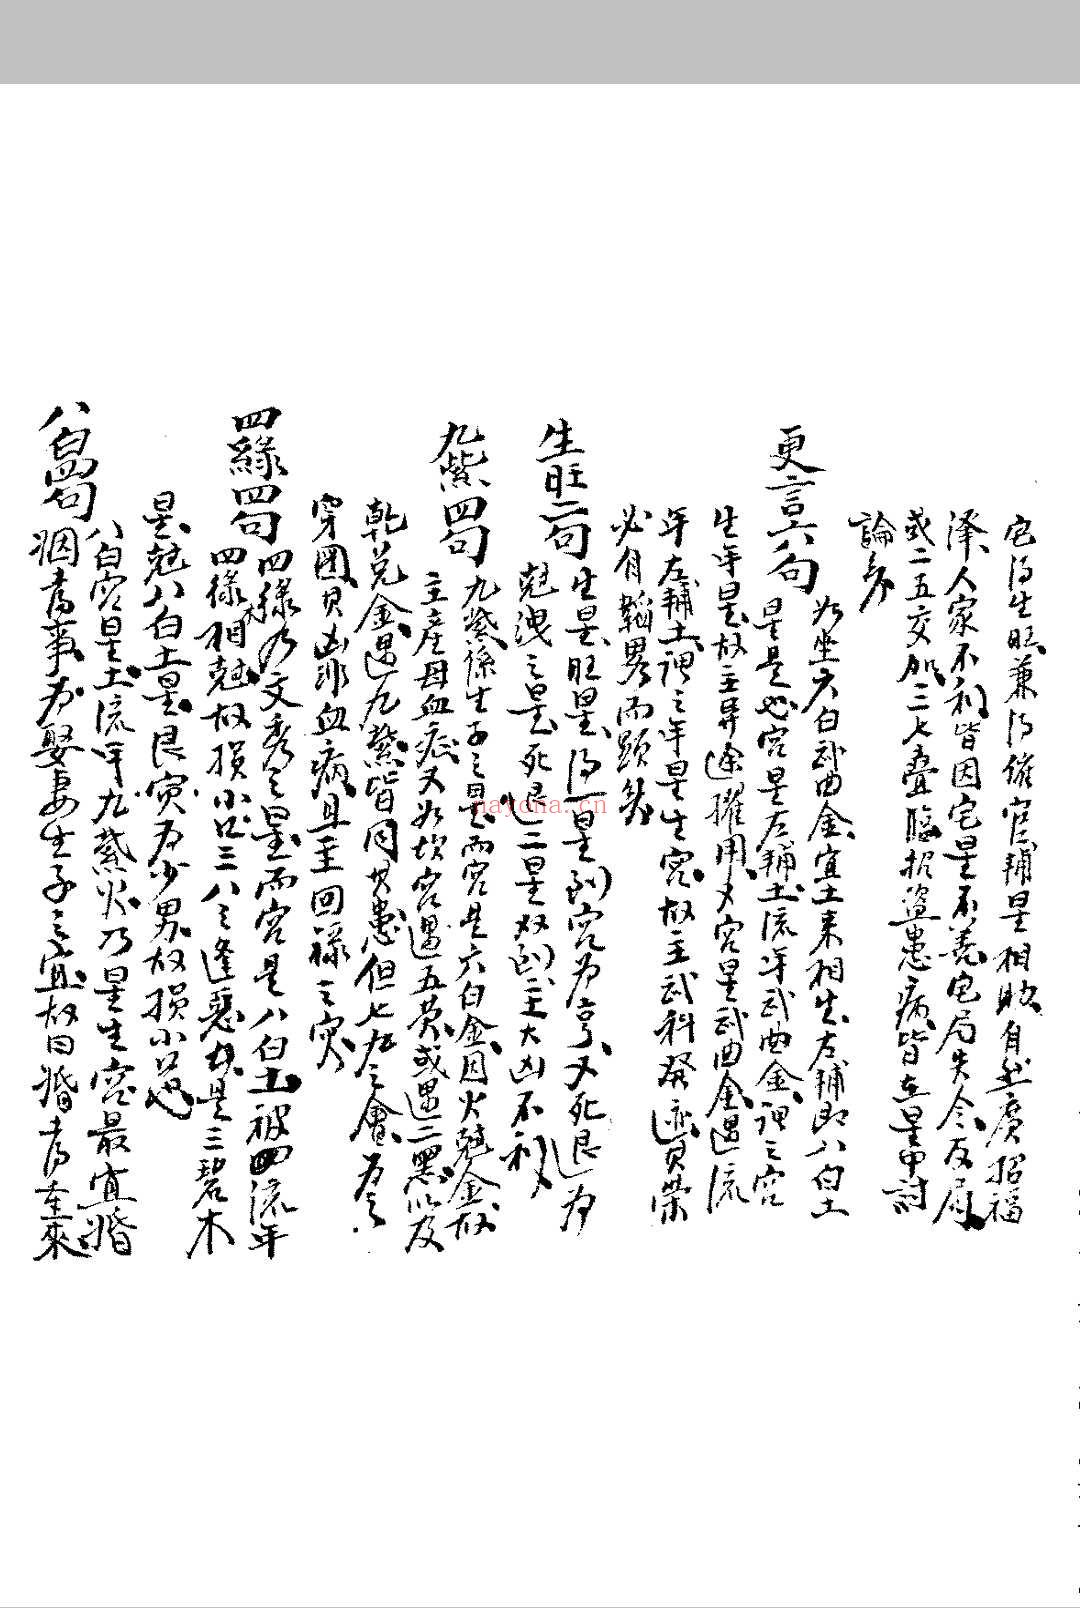 宅得生旺兼得催官輔星相助自然廣招福
澤人家不利皆因宅星不善宅局失令反局
或二五交加三七疊臨招盜患病皆在星中討
論矣
更言六句
如坐六白武曲金宜土來相生左輔即八白土
星是也宮星左輔土流年武曲金謂之宮
生年星故主異途擢用又宮星武曲金遇流
年左輔土謂之年星生宮故主武科發跡貝榮
必有韜畧而顯矣
生旺二句
生星旺星得一星到宮為亨又死退為
尅洩之星死退二星双到主大凶不利
九紫四句
九紫係生子之星而宮是六白金因火尅金故
主產母血症又如坎宮遇五黄或遇二黑以及
乾兌金遇九紫皆同其患但七九之會為之
穿圖貝凶非血病且主回祿之灾
四綠四句
四綠乃文秀之星而宮是八白土被四流年
四綠木相尅故損小口三八之逢惡者是三碧木
星尅八白土星艮寅為少男故損小口也
八白四句
八白宮星土流年九紫火乃星生宮最宜婚
姻喜事為娶妻生子之宜故曰婚喜重來
nayona.cn